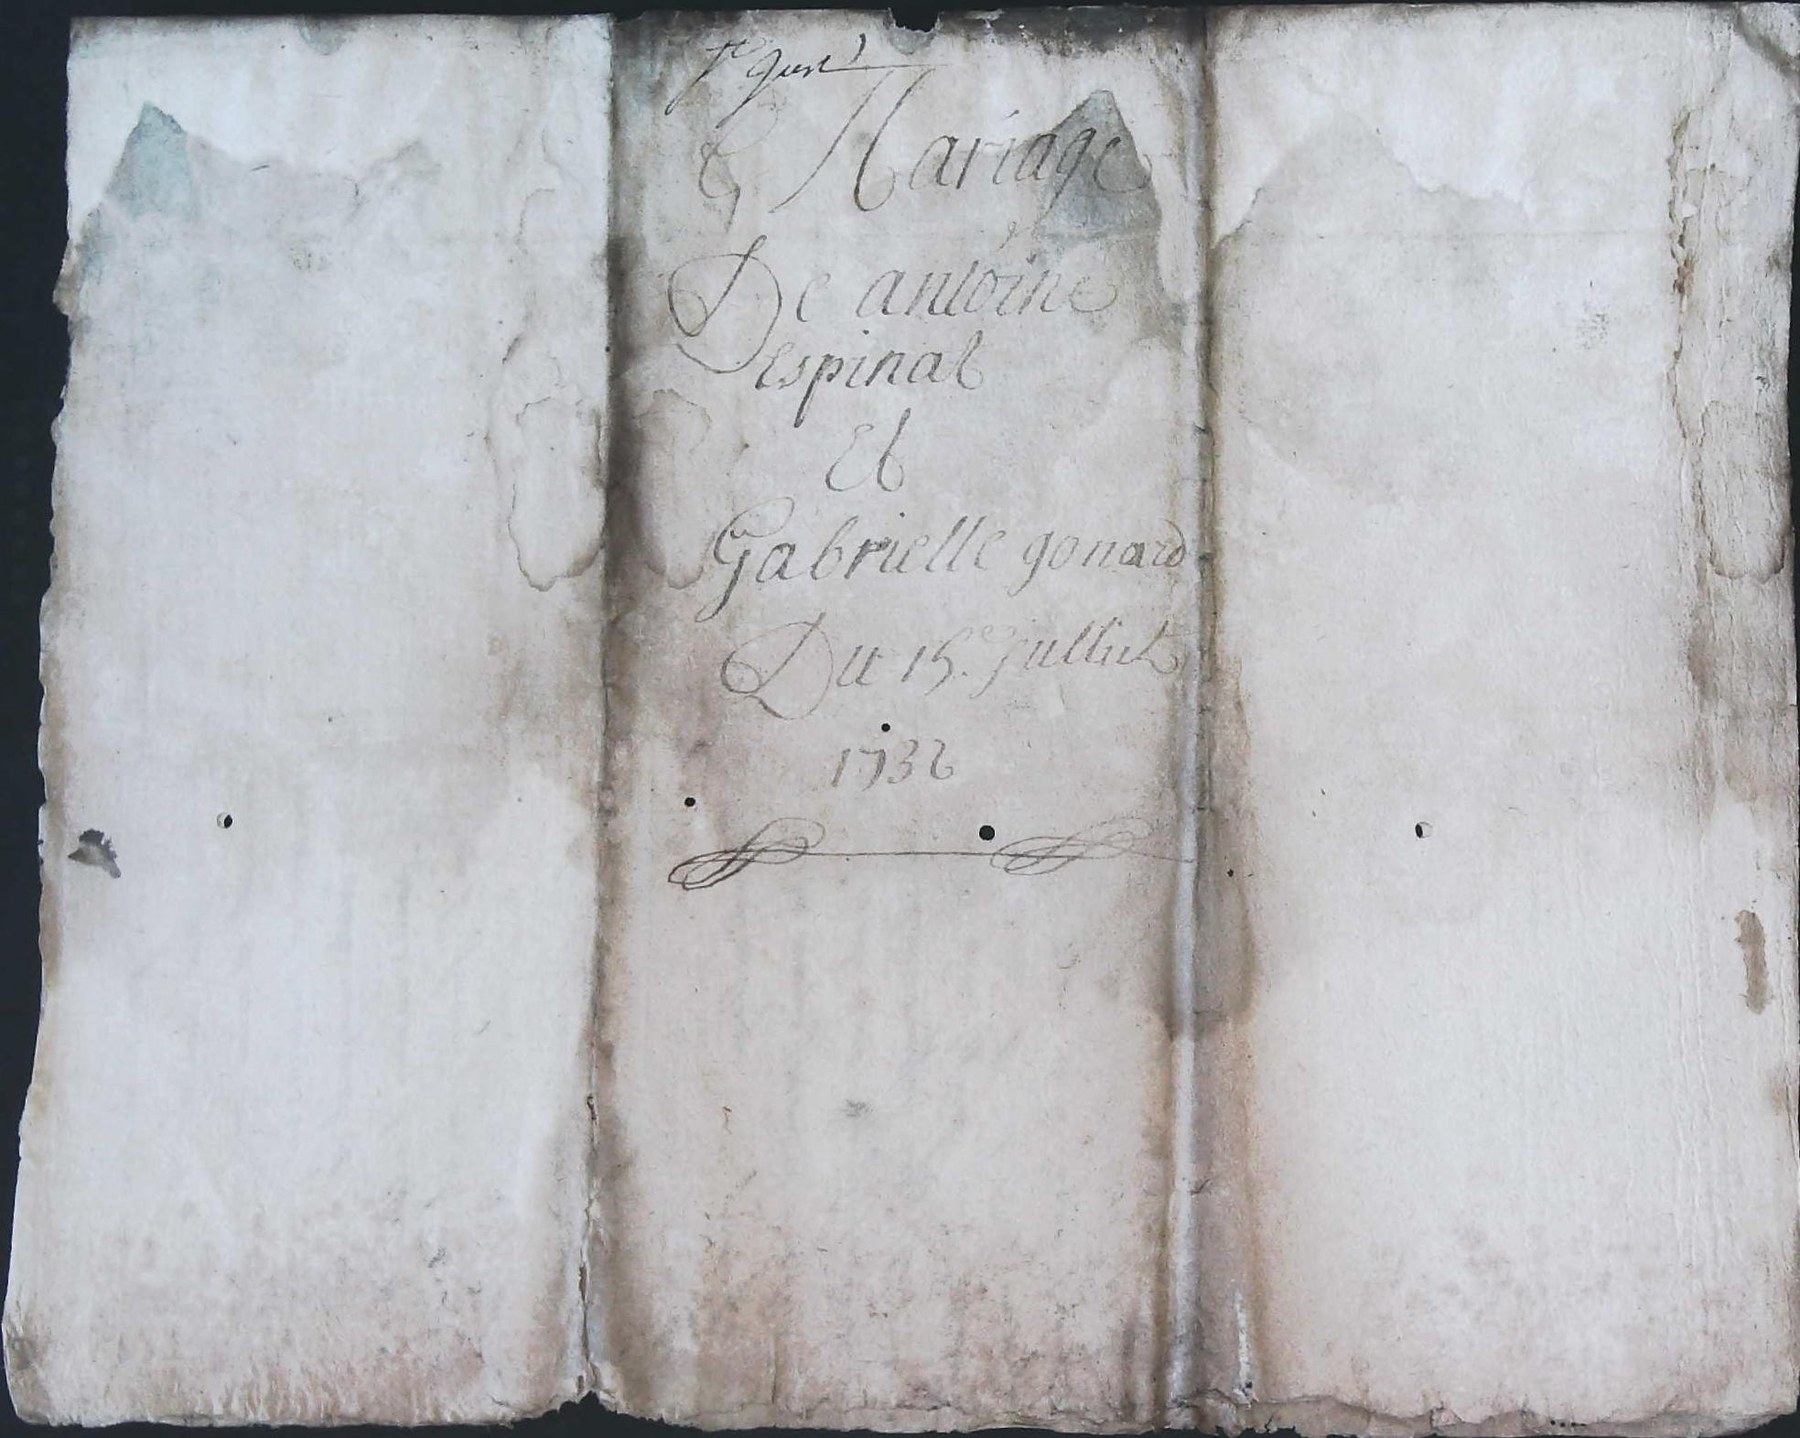 Mariage
De antoine
Espinat
Et
Gabrielle gonard
Du 15e Julliet
1732